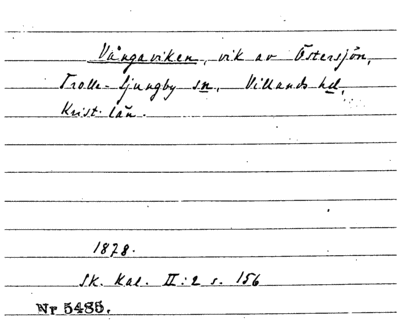 Vångaviken, vik av Östersjön,
Trolle-Ljungby sn, Villands hd,
Krist. län.
1878.
Sk. Kal. II:2 s. 156
Nr 5485.